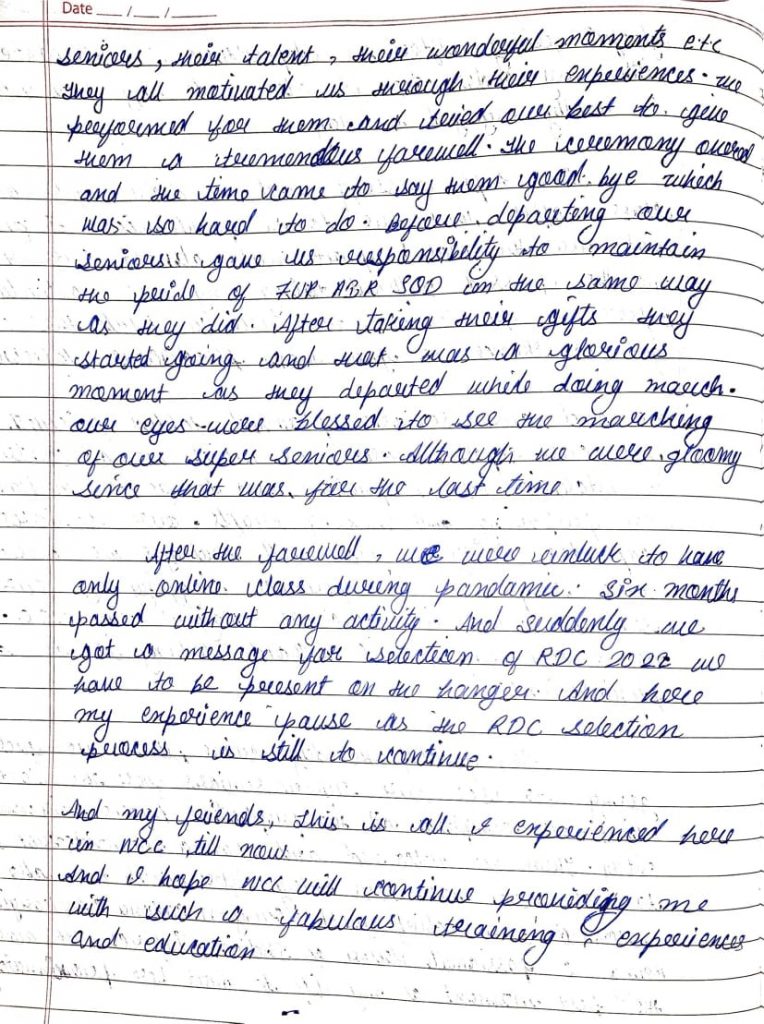 Date ___/___/______
seniors, their talent, their wonderful moments etc
They all motivated us through their experiences. We
performed for them and tried our best to give
them a tremendous farewell. The ceremony overed
and the time came to say them good bye which
was so hard to do. Before departing our
seniors gave us responsibility to maintain
the pride of 7UP AIR SQD in the same way
as they did. After taking their gifts they
started going and that was a glorious
moment as they departed while doing march.
our eyes were blessed to see the marching
of our super seniors. Although we were gloomy
since that was for the last time.
After the farewell, we were inluck to have
only online class during pandamic. Six months
passed without any activity. And suddenly we
got a message for selection of RDC 2022 we
have to be present on the hanger. And here
my experience pause as the RDC selection
process is still to continue.
And my friends, this is all I experienced here
in NCC till now.
And I hope NCC will continue providing me
with such a fabulous training, experiences
and education